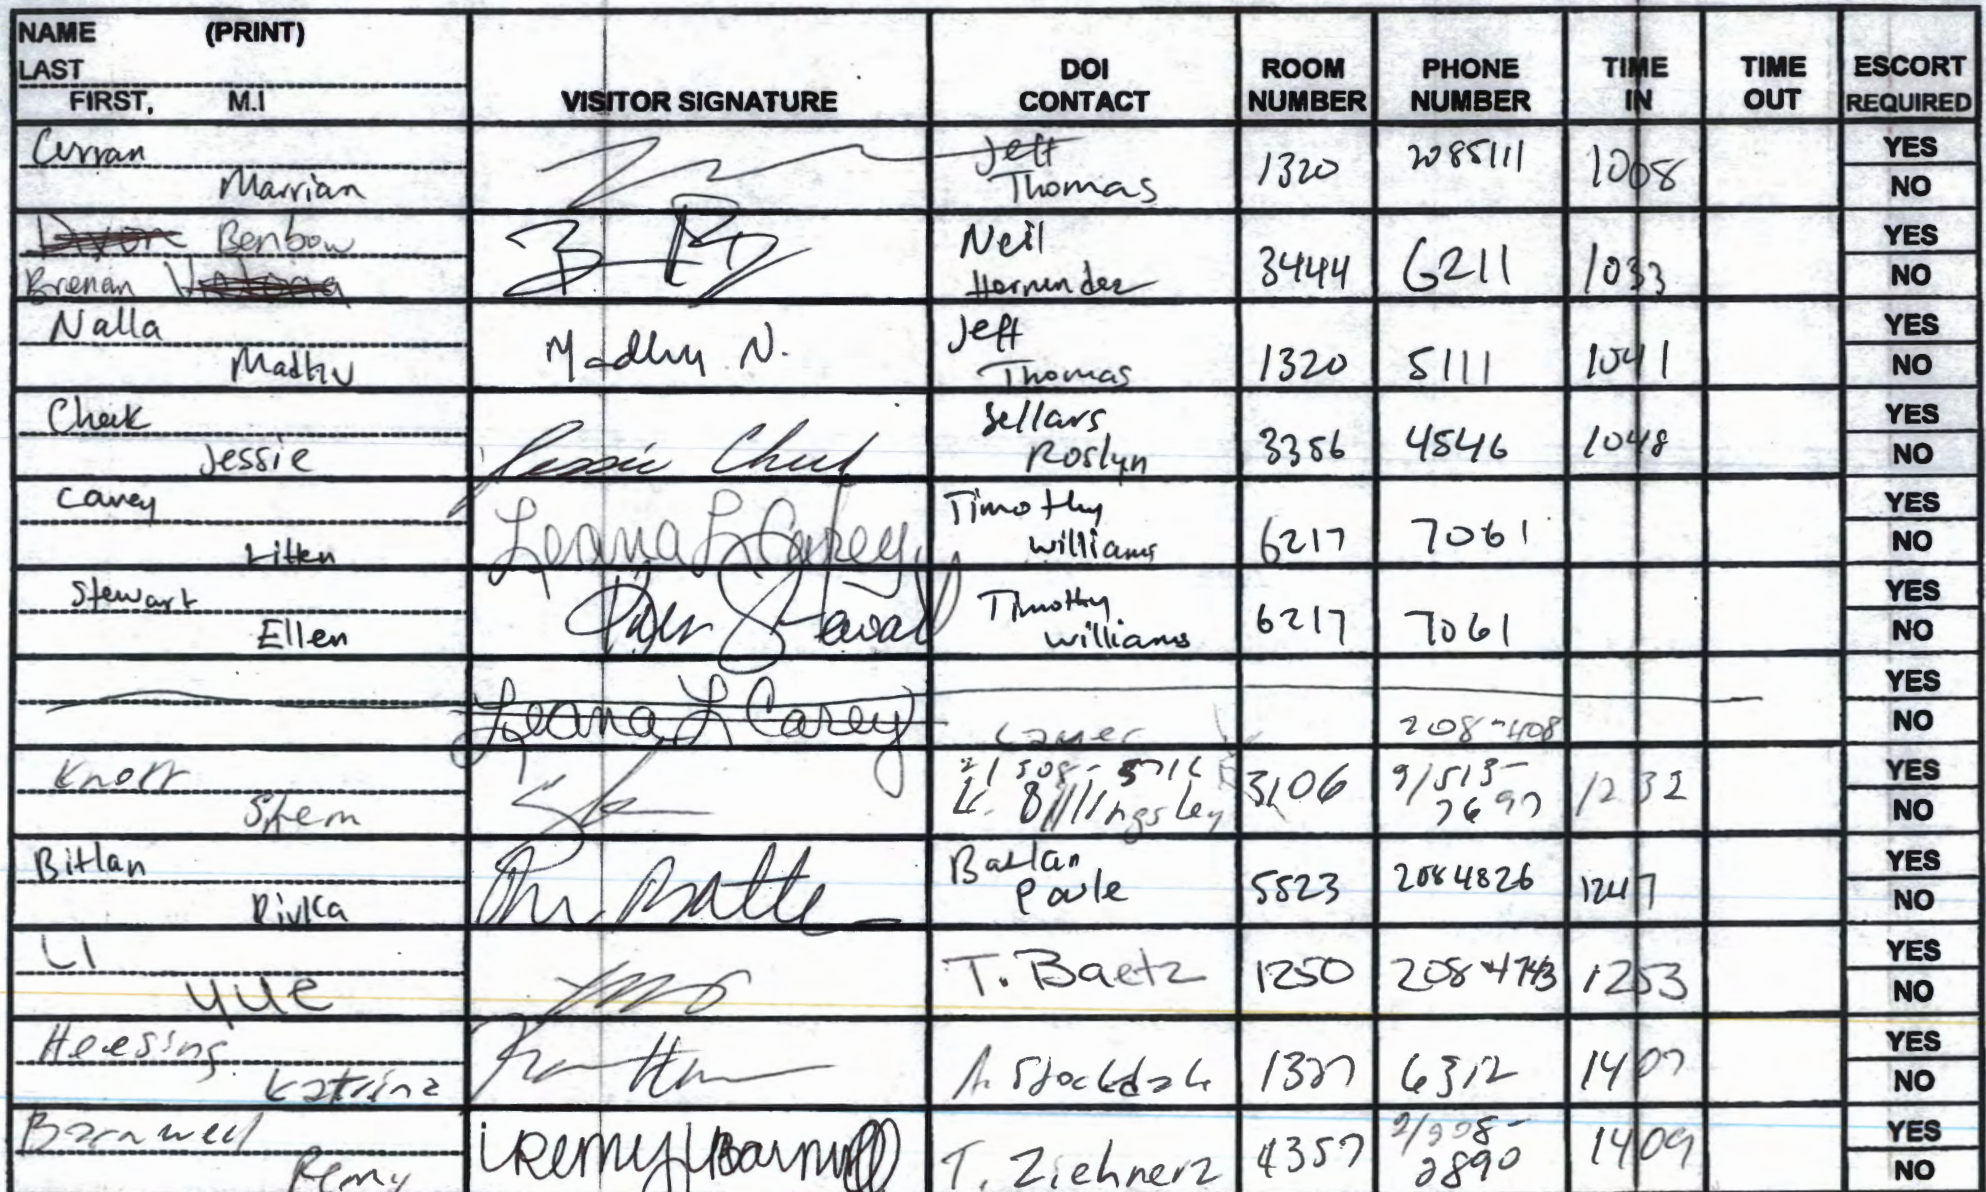 NAME (PRINT)
LAST
FIRST, M.I
VISITOR SIGNATURE
DOI CONTACT
ROOM NUMBER
PHONE NUMBER
TIME IN
TIME OUT
ESCORT REQUIRED
Curran
Marrian
Jeff
Thomas
1320
2085111
1008
YES
NO
Benbow
Brenan
Neil
Hernandez
3444
6211
1033
YES
NO
Nalla
Madhu
Madhu N.
Jeff
Thomas
1320
5111
1041
YES
NO
Cheek
Jessie
Jessie Cheek
Sellars
Roslyn
3356
4546
1048
YES
NO
Carey
Leana L Carey
Timothy
Williams
6217
7061
YES
NO
Stewart
Ellen
Ellen Stewart
Timothy
Williams
6217
7061
YES
NO
Leana L Carey
208-408
YES
NO
Knorr
K. Billingsley
3106
9/513-
7697
1232
YES
NO
Bitlan
Rivka
Batlan
Paule
5523
2084826
1247
YES
NO
LI
YUE
T. Baetz
1250
208 4743
1253
YES
NO
Heesing
Katrina
A. Stockdale
1327
6312
1407
YES
NO
Barnwell
Remy
Remy Barnwell
T. Ziehnerz
4357
2/208-
2890
1409
YES
NO